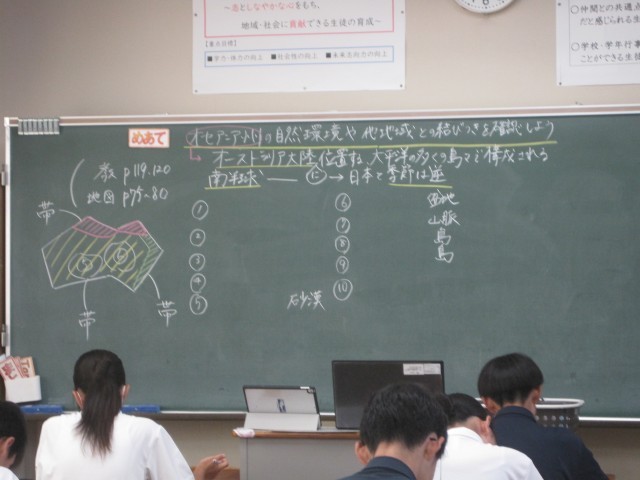 ～志としなやかな心をもち、
地域・社会に貢献できる生徒の育成～
【重点目標】
■学力・体力の向上 ■社会性の向上 ■未来志向力の向上
○仲間との共通
だと感じられる生
○学校・学年行事
ことができる生徒
めあて オセアニア州の自然環境や他地域との結びつきを確認しよう
→ オーストラリア大陸 位置する、太平洋の多くの島々で構成される
南半球 → 日本と季節は逆
教 p119.120
地図 p75~80
帯
帯
帯
① ⑥ 盆地
② ⑦ 山脈
③ ⑧ 島
④ ⑨ 島
⑤ 砂漠 ⑩